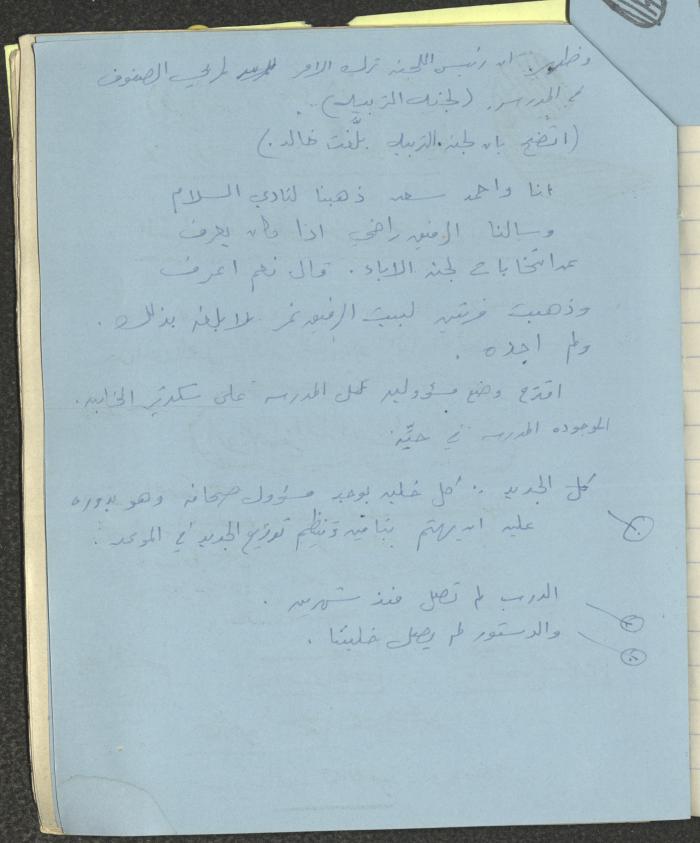 وظهر ان رئيس اللجنه ترك الامر لمربي الصفوف
في المدرسه. (لجنة التربيه).
(اتضح بان لجنة التربيه بلّغت خالد.)
انا واحمد سعد ذهبنا لنادي السلام
وسالنا الرفيق راضي اذا كان يعرف
عن انتخابات لجنة الاباء. قال نعم اعرف
وذهبت مرتين لبيت الرفيق نمر لابلغه بذلك.
ولم اجده.
اقترح وضع مسؤولية عمل المدرسه على سكرتير الخليه.
الموجوده المدرسه في حيِّه.
كل الجديد .. كل خليه يوجد مسؤول صحافه وهو بدوره
عليه ان يهتم بتأمين وتنظيم توزيع الجديد في الموعد.
الدرب لم تصل منذ شهرين.
والدستور لم يصل خليتنا.